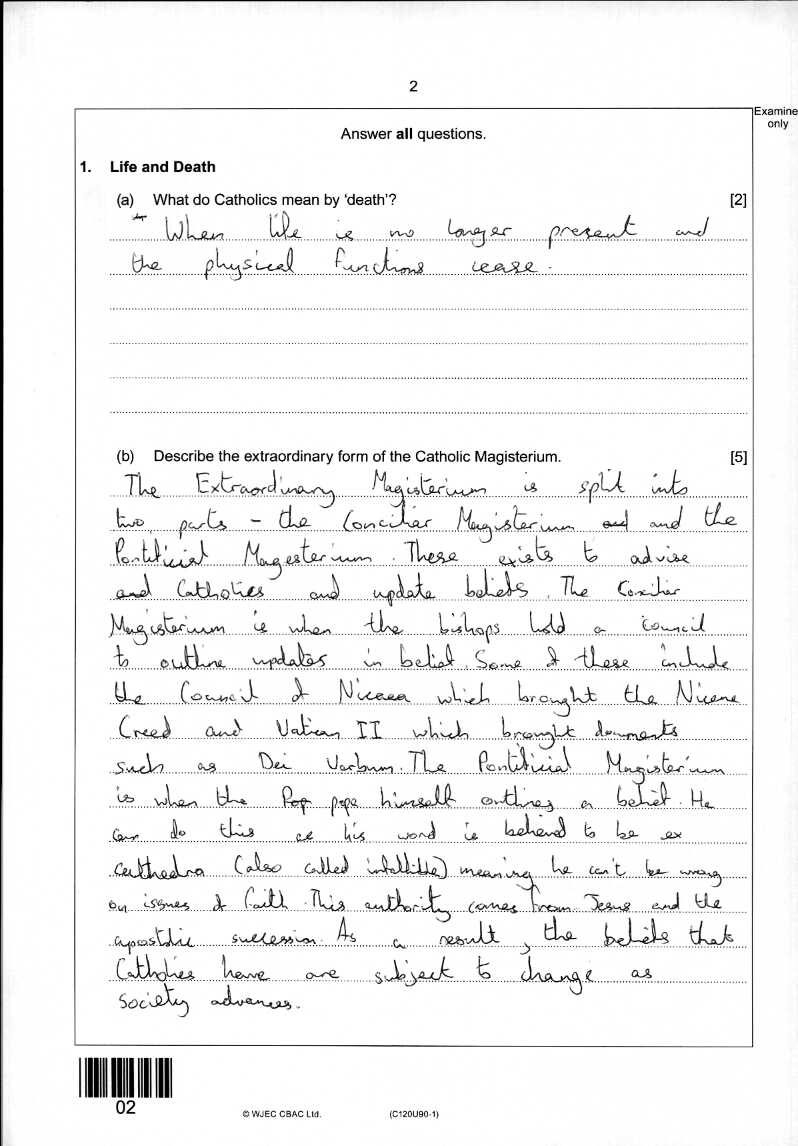 2
Examine
only
Answer all questions.
1. Life and Death
(a) What do Catholics mean by 'death'? [2]
When life is no longer present and
the physical functions cease.
(b) Describe the extraordinary form of the Catholic Magisterium. [5]
The Extraordinary Magisterium is split into
two parts - the Conciliar Magisterium and and the
Pontificial Magesterium. These exists to advise
and Catholics and update beliefs. The Conciliar
Magisterium is when the bishops hold a council
to outline updates in belief. Some of these include
the Council of Nicaea which brought the Nicene
Creed and Vatican II which brought documents
such as Dei Verbum. The Pontificial Magisterium
is when the Pop pope himself outlines a belief. He
can do this as his word is believed to be ex
cathedra (also called infallible) meaning he can't be wrong
on issues of faith. This authority comes from Jesus and the
apostolic succession. As a result, the beliefs that
Catholics have are subject to change as
society advances.
02
© WJEC CBAC Ltd. (C120U90-1)